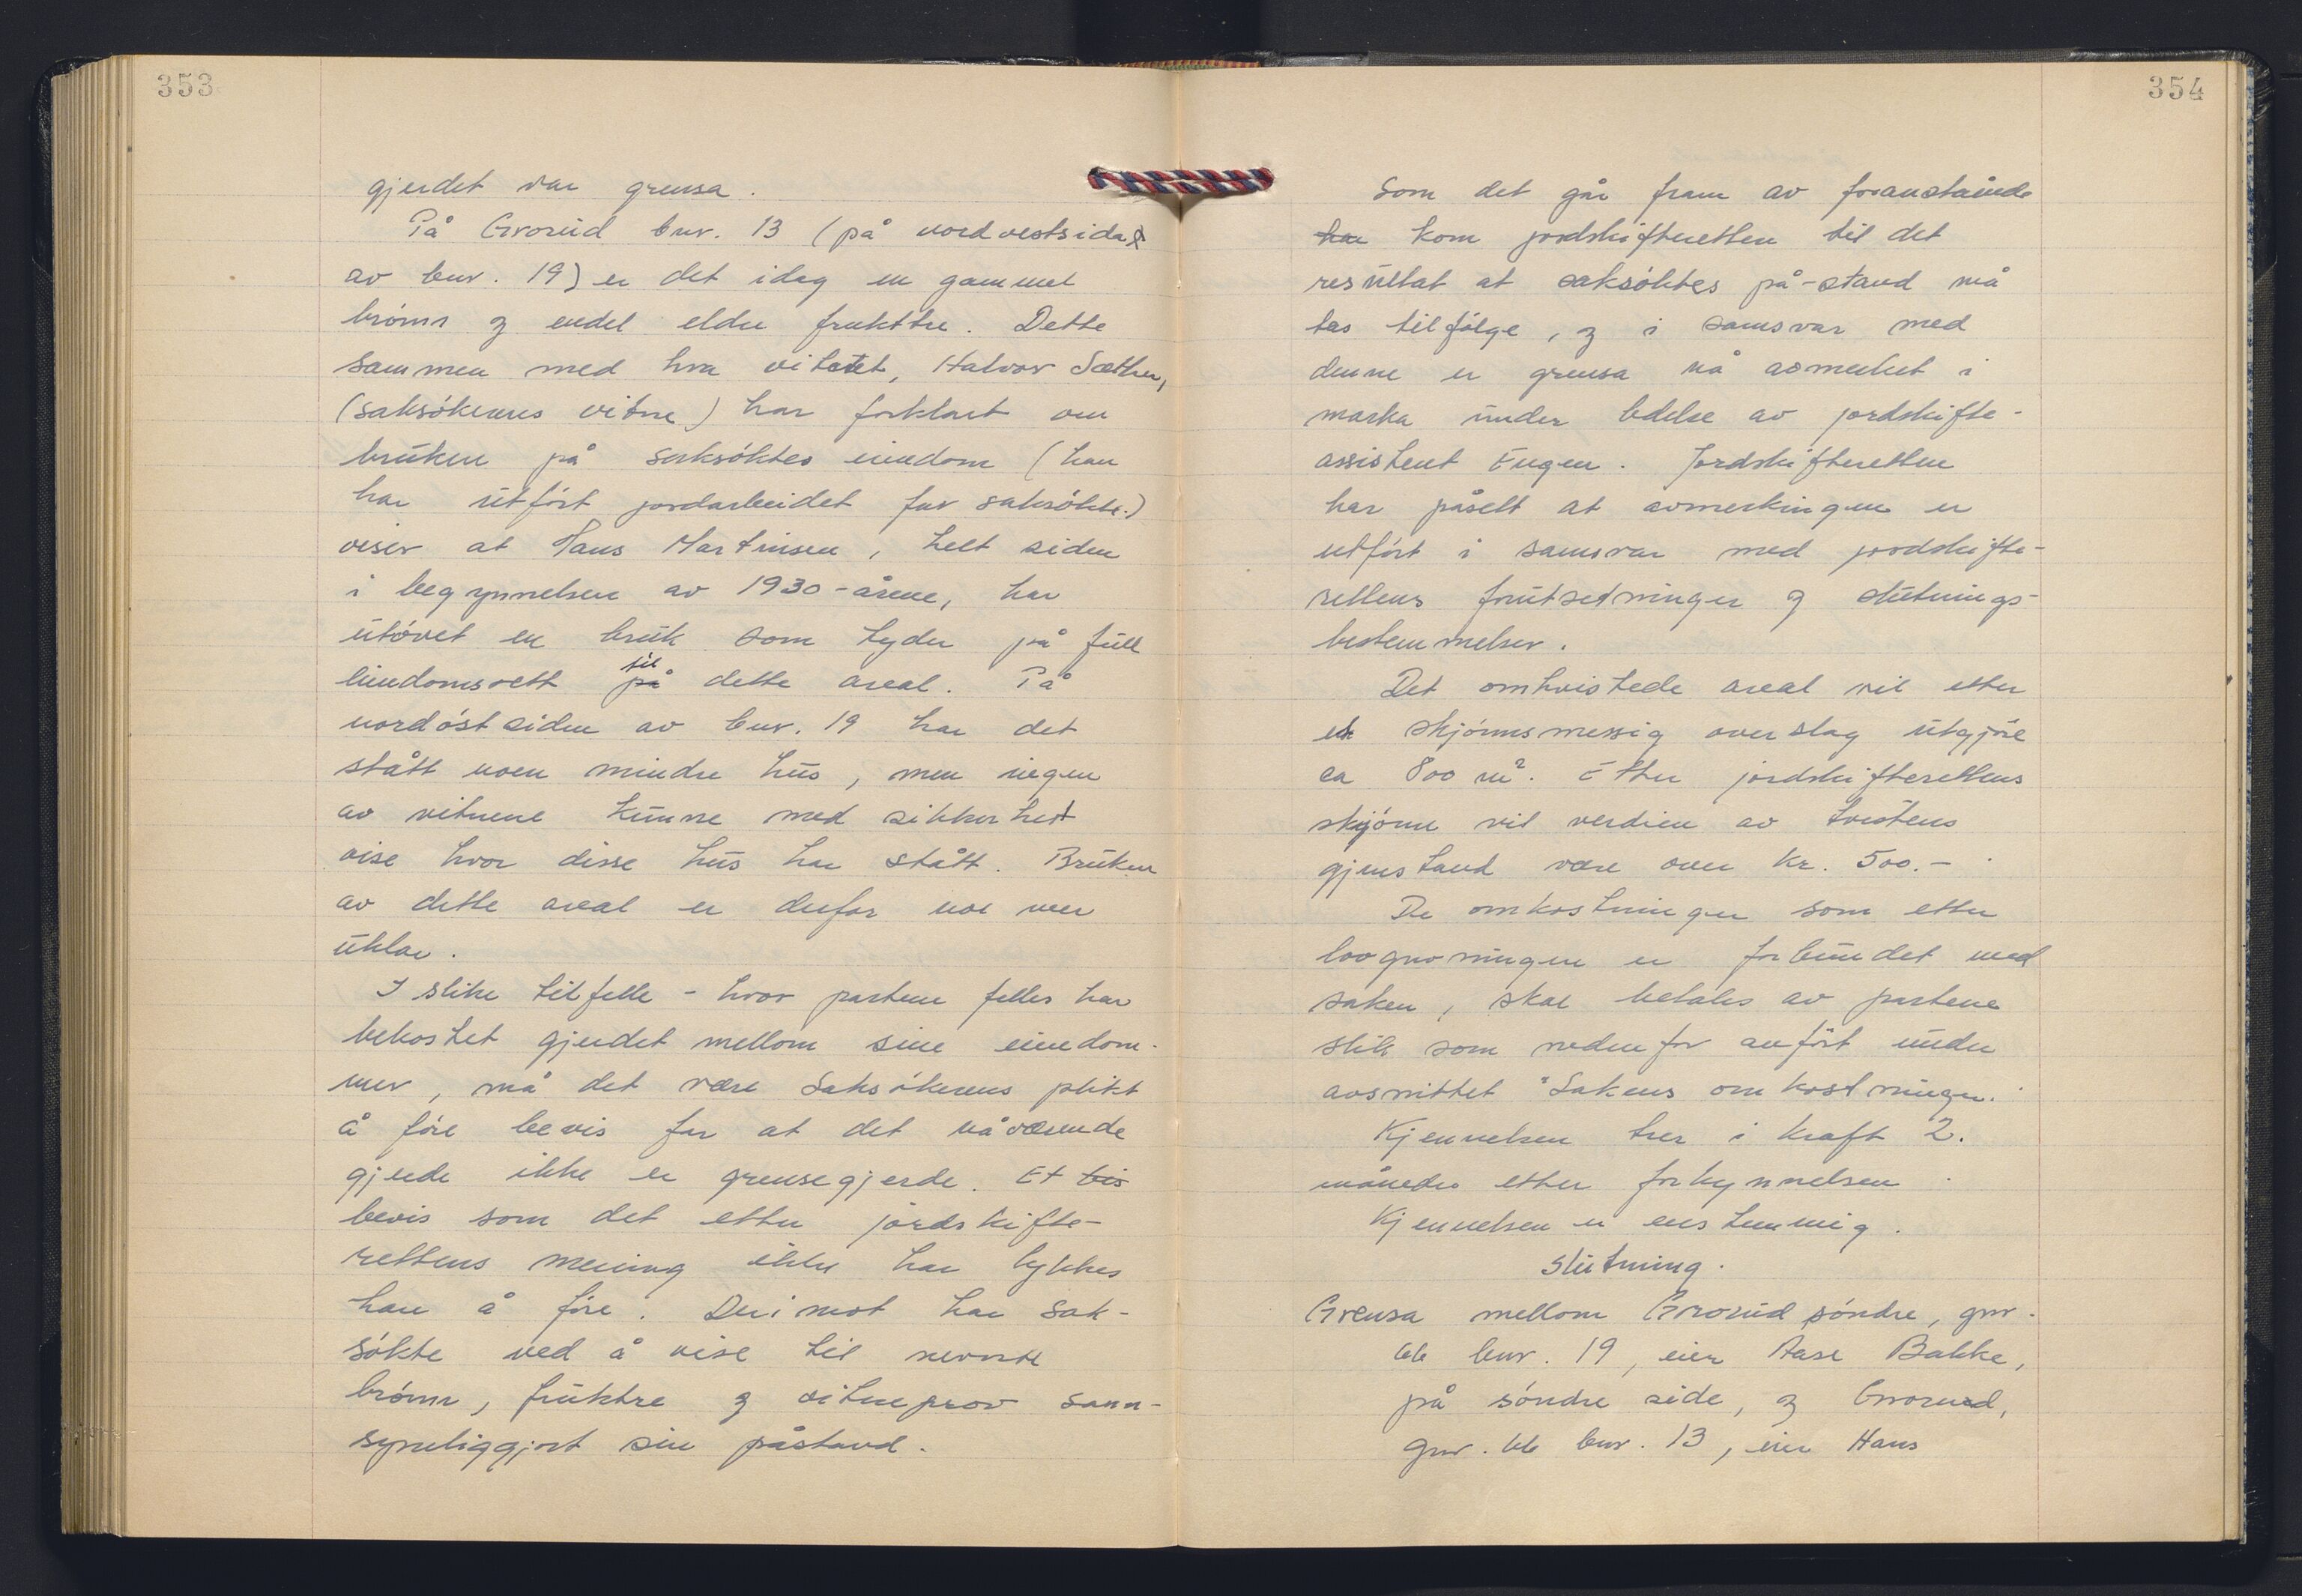 353
gjerdet var grensa.
På Grorud bnr. 13 (på nordvestsida
av bnr. 19) er det idag en gammel
brønn og endel eldre frukttre. Dette
sammen med hva vitnet, Halvor Sæther,
(saksökerens vitne) har forklart om
bruken på saksöktes eiendom (han
har utfört jordarbeidet for saksökte.)
viser at Hans Martinsen, helt siden
i begynnelsen av 1930-årene, har
utövet en bruk som tyder på full
eiendomsrett til på dette areal. På
nordöstsiden av bnr. 19 har det
stått noen mindre hus, men ingen
av vitnene kunne med sikkerhet
vise hvor disse hus har stått. Bruken
av dette areal er derfor noe mer
uklar.
I slike tilfelle - hvor partene felles har
bekostet gjerdet mellom sine eiendom-
mer, må det være Saksökerens plikt
å före bevis for at det nåværende
gjerde ikke er grensegjerde. Et bis
bevis som det etter jordskifte-
rettens mening ikke har lykkes
han å före. Derimot har sak-
sökte ved å vise til nevnte
brönn, fruktre og vitneprov sann-
synliggjort sin påstand.
354
Som det går fram av foranstående
har kom jordskifteretten til det
resultat at saksöktes på-stand må
tas tilfölge, og i samsvar med
denne er grensa nå avmerket i
marka under ledelse av jordskifte-
assistent Engen. Jordskifteretten
har påsett at avmerkingen er
utfört i samsvar med jordskifte-
rettens forutsetninger og slutnings-
bestemmelser.
Det omtvistede areal vil etter
et skjönnsmessig overslag utgjöre
ca 800 m². Etter jordskifterettens
skjönn vil verdien av tvistens
gjenstand være over kr. 500.-
De omkostninger som etter
lovgivningen er forbundet med
saken, skal betales av partene
slik som nedenfor anfört under
avsnittet "Sakens omkostninger.
Kjennelsen trer i kraft 2.
måneder etter forkynnelsen
Kjennelsen er enstemmig.
Slutning.
Grensa mellom Grorud söndre, gnr.
66 bnr. 19, eier Aase Bakke,
på söndre side, og Grorud,
gnr. 66 bnr. 13, eier Hans